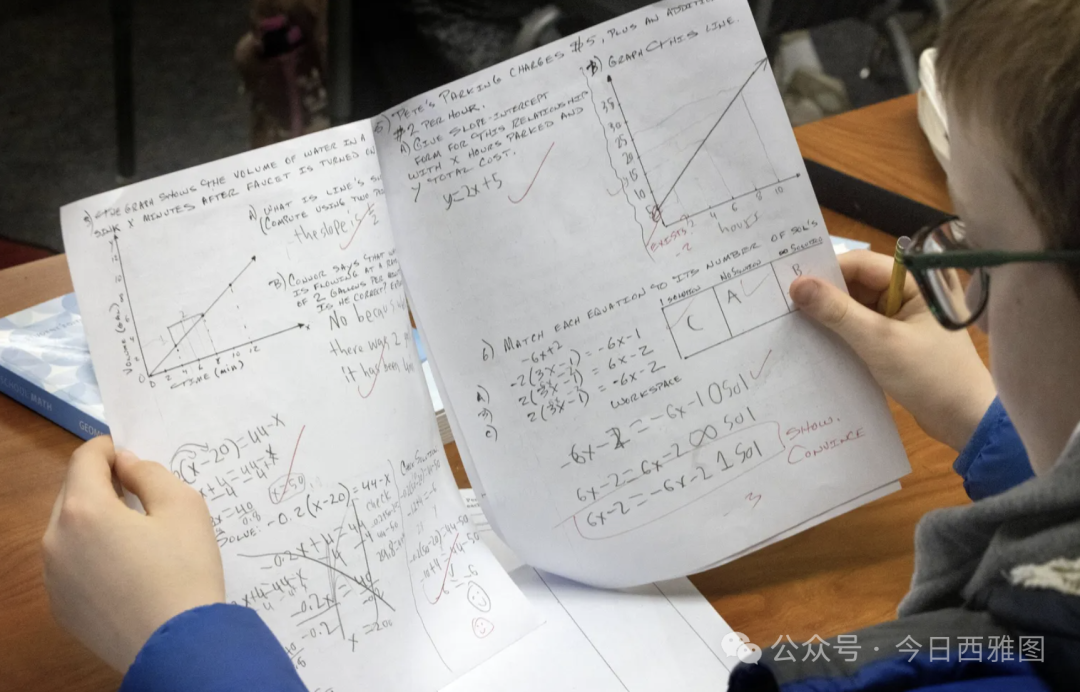 GRAPH SHOWS THE VOLUME OF WATER IN A
SINK X MINUTES AFTER FAUCET IS TURNED ON
A) WHAT IS LINE'S
(COMPUTE USING TWO
the slope is 1/2
B) CONNOR SAYS THAT
IS FLOWING AT A
OF 2 GALLONS PER
IS HE CORRECT?
No because
there was 2
it has been
VOLUME (GAL)
0 2 4 6 8 10 12
TIME (MIN)
(x-20)=44-x
SOLVE:
-0.2(x-20)=44-x
-0.2x+4=44
x+4=44-x
-0.2x
-0.2
x=200
CHECK SOLUTION
5) PETE'S PARKING CHARGES $5, PLUS AN ADDITIO
$2 PER HOUR.
A) GIVE SLOPE-INTERCEPT
FORM FOR THIS RELATIONSHIP
WITH X HOURS PARKED AND
Y TOTAL COST.
y=2x+5
B) GRAPH THIS LINE.
35
30
25
20
15
10
2 4 6 8 10
hours
6) MATCH EACH EQUATION TO ITS NUMBER OF SOL'S
1 SOLUTION NO SOLUTION ∞ SOLUTION
C A B
-6x+2
A) -2(3x-1) = -6x-1
B) 2(3x-1) = 6x-2
C) 2(3x-1) = -6x-2
WORKSPACE
-6x-2=-6x-1 0 sol
6x-2=6x-2 ∞ sol
6x-2=-6x-2 1 sol
SHOW.
CONVINCE
-3
SCHOOL MATH
公众号 · 今日西雅图